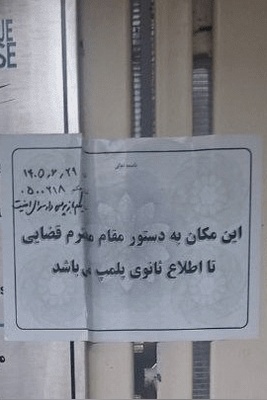 UE
SE
باسمه تعالی
۱۴۰۵٫۲٫۲۹
۰۵۰۰۲۱۸
این مکان به دستور مقام محترم قضایی
تا اطلاع ثانوی پلمپ می باشد